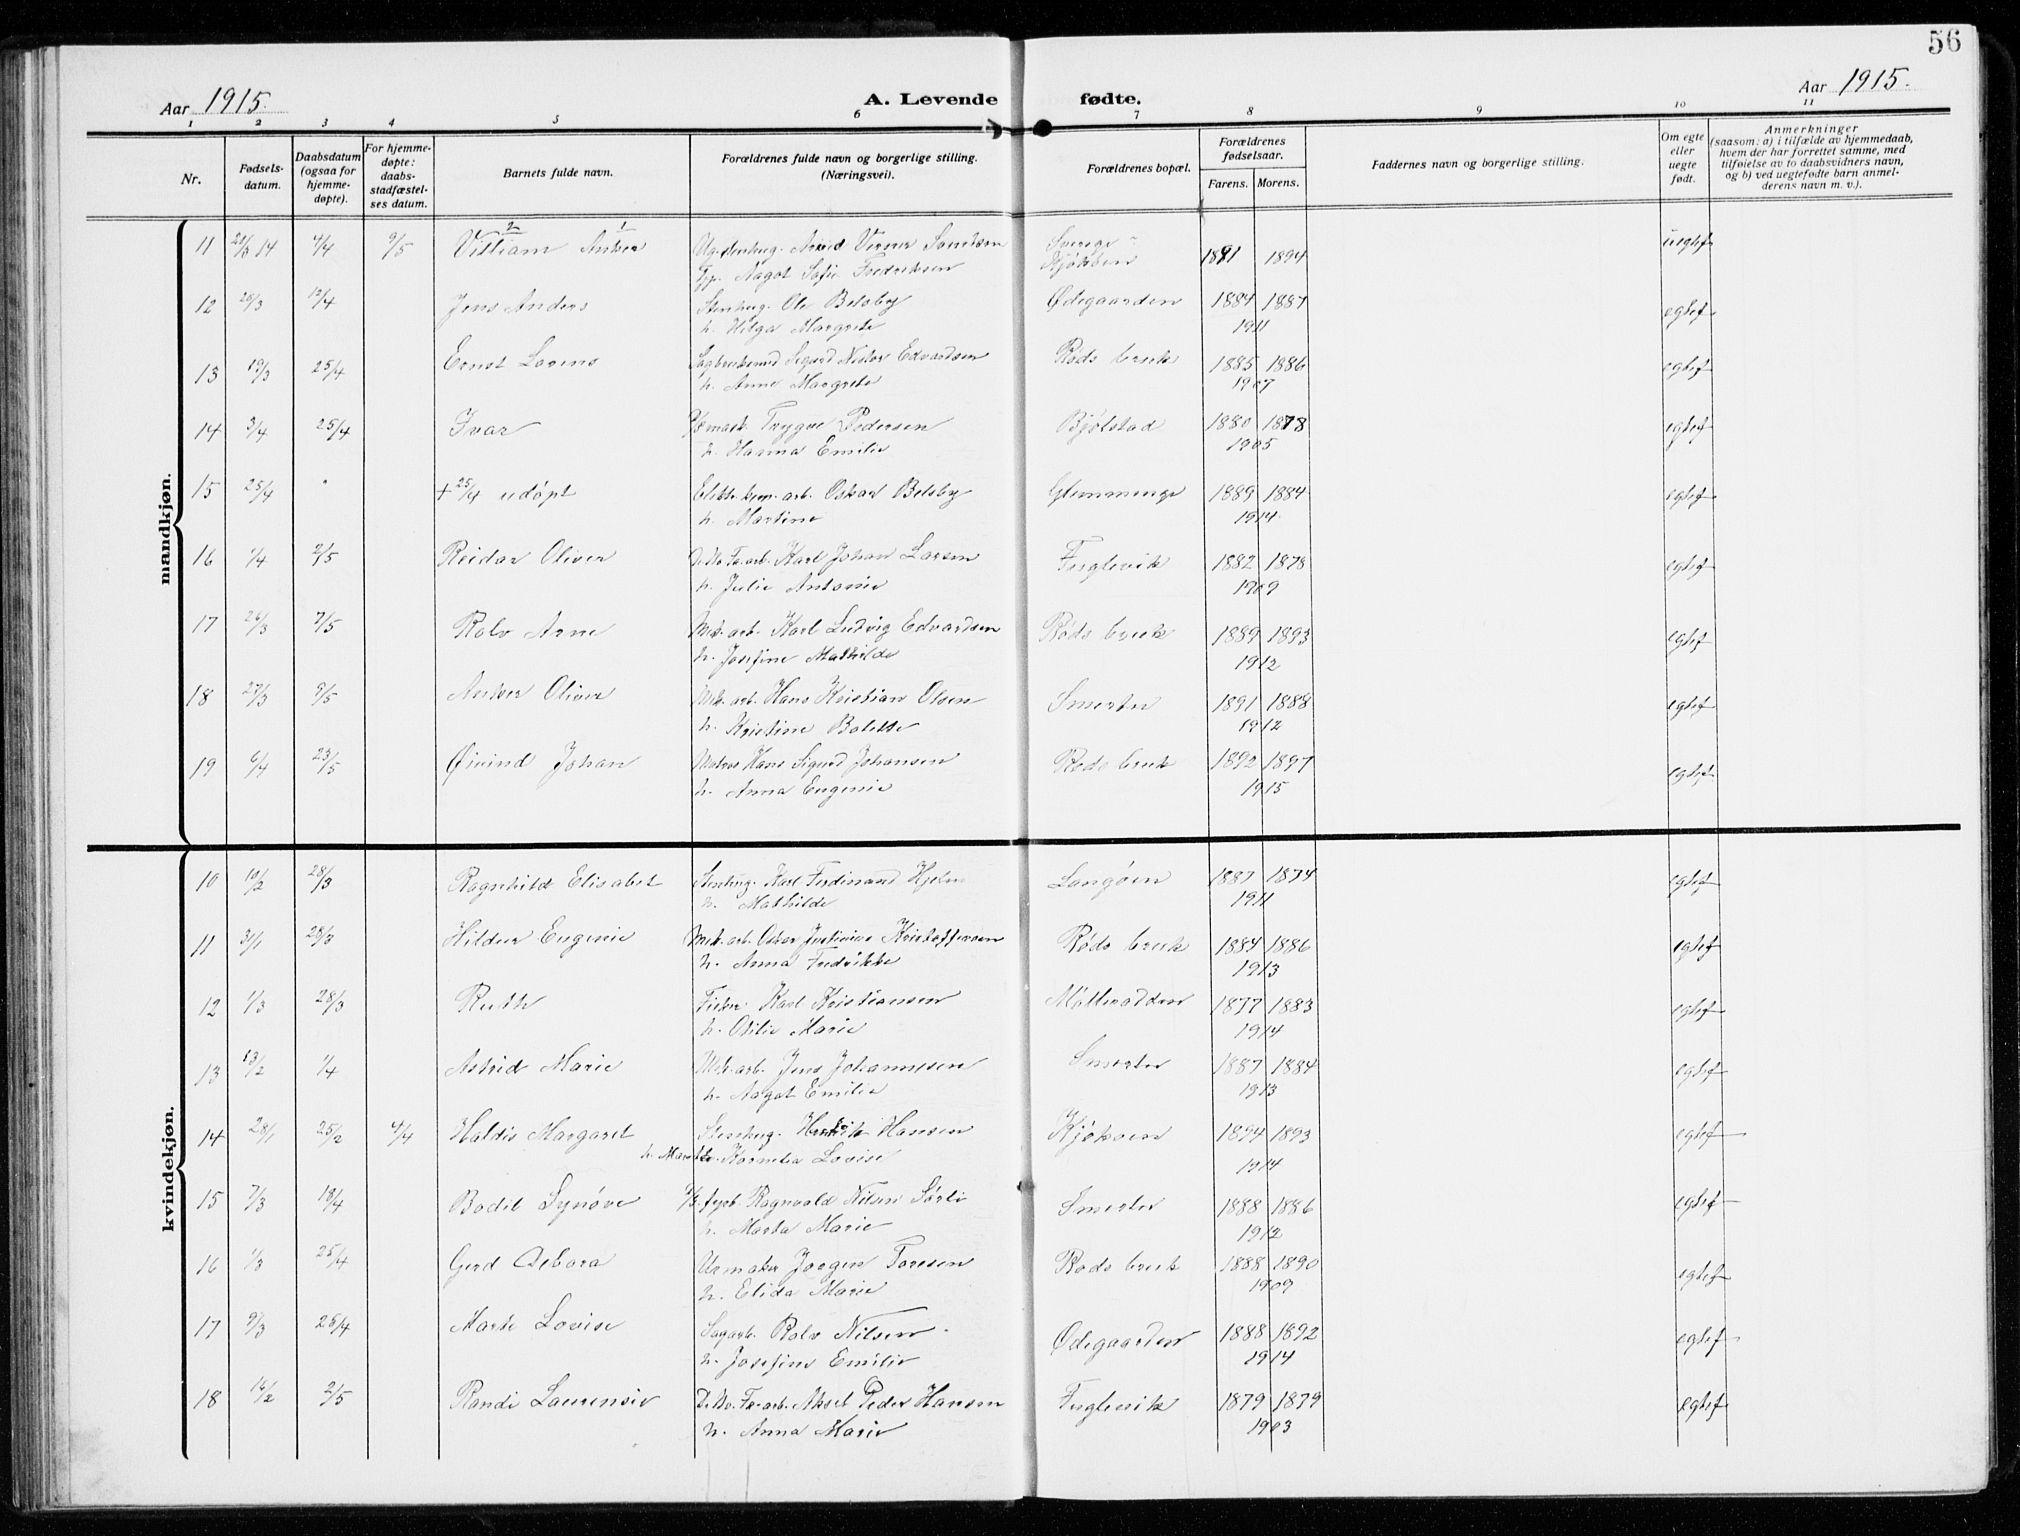 56
Aar 1915.
A. Levende fødte.
Aar 1915.
1 2 3 4 5 6 7 8 9 10 11
Nr.
Fødsels-
datum.
Daabsdatum
(ogsaa for
hjemme-
døpte).
For hjemme-
døpte:
daabs-
stadfæstel-
ses datum.
Barnets fulde navn.
Forældrenes fulde navn og borgerlige stilling.
(Næringsvei).
Forældrenes bopæl.
Forældrenes
fødselsaar.
Farens. Morens.
Faddernes navn og borgerlige stilling.
Om egte
eller
uegte
født.
Anmerkninger
(saasom: a) i tilfælde av hjemmedaab,
hvem der har forrettet samme, med
tilføielse av to daabsvidners navn,
og b) ved uegtefødte barn anmel-
derens navn m. v.).
mandkjøn.
2 1
11 4/4 9/5 Villiam Anker Verner Sverige 1891 1894 uegtef
Nagot Sofie Fredriksen Kjøkøen
12 20/3 12/4 Jens Anders Stenhug. Ole Belsby Ødegaarden 1884 1887 egtef
h. Helga Margrete 1911
13 19/3 25/4 Ernst Lorens Sigurd Edvardsen Røds bruk 1885 1886 egtef
h. Anne Margrete 1907
14 3/4 25/4 Ivar Trygve Pedersen Bjølstad 1880 1878 egtef
h. Hanna Emilie 1905
15 25/4 " + 25/4 udøpt arb. Oskar Belsby Glemminge 1889 1884 egtef
h. Martine 1914
16 1/4 2/5 Reidar Oliver Karl Johan Larsen Fuglevik 1882 1878 egtef
h. Julie Antonie 1909
17 26/3 2/5 Rolv Arne Mek. arb. Karl Ludvig Edvardsen Røds bruk 1889 1893 egtef
h. Josefine Mathilde 1912
18 27/3 9/5 Anker Oliver Mek. arb. Hans Kristian Olsen Smerter 1891 1888 egtef
h. Kristine Bolette 1912
19 6/4 23/5 Øivind Johan Matros Hans Sigurd Johansen Røds bruk 1892 1897 egtef
h. Anna Eugenie 1915
kvindekjøn.
10 10/2 28/3 Ragnhild Elisabet Stenhug. Karl Ferdinand Hjelm Langøen 1887 1874 egtef
h. Mathilde 1911
11 31/1 28/3 Hildur Eugenie Mek. arb. Oskar Justinius Kristoffersen Røds bruk 1884 1886 egtef
h. Anna Fredrikke 1913
12 1/3 28/3 Ruth Fisker Karl Kristiansen Mølleodden 1877 1883 egtef
h. Otilie Marie 1914
13 13/2 1/4 Astrid Marie Mek. arb. Jens Johannesen Smerter 1887 1884 egtef
h. Nagot Emilie 1913
14 28/1 25/2 4/4 Haldis Margaret Stenhug. Henrik Hansen Kjøkøen 1894 1893 egtef
h. Kornelia Lovise 1914
15 7/3 18/4 Bodil Synøve Ragnvald Nilsen Sørli Smerter 1888 1886 egtef
h. Marta Marie 1912
16 1/3 25/4 Gerd Debora Urmaker Jørgen Toresen Røds bruk 1888 1890 egtef
h. Elida Marie 1909
17 9/3 25/4 Marte Lovise Sagarb. Rolv Nilsen Ødegaarden 1888 1892 egtef
h. Josefine Emilie 1914
18 16/2 2/5 Randi Laurensie Aksel Peder Hansen Fuglevik 1879 1879 egtef
h. Anna Marie 1903